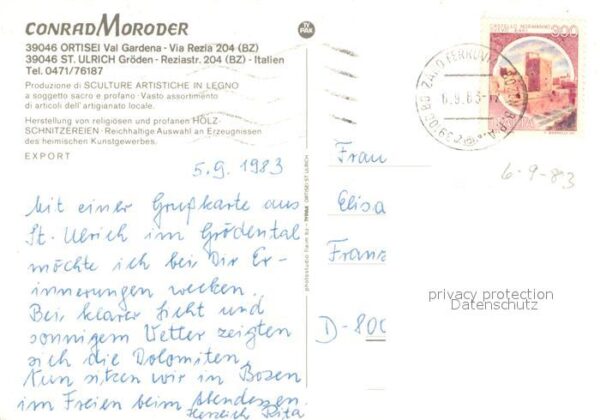 CONRAD MORODER
39046 ORTISEI Val Gardena - Via Rezia 204 (BZ)
39046 ST. ULRICH Gröden - Reziastr. 204 (BZ) - Italien
Tel. 0471/76187
Produzione di SCULTURE ARTISTICHE IN LEGNO
a soggetto sacro e profano - Vasto assortimento
di articoli dell'artigianato locale.
Herstellung von religiösen und profanen HOLZ-
SCHNITZEREIEN - Reichhaltige Auswahl an Erzeugnissen
des heimischen Kunstgewerbes.
EXPORT
5.9.1983
Mit einer Grußkarte aus
St. Ulrich im Grödental
möchte ich bei Dir Er-
innerungen wecken.
Bei klarer Sicht und
sonnigem Wetter zeigten
sich die Dolomiten.
Nun sitzen wir in Bozen
im Freien beim Abendessen.
Herzlich Rita
TYPAK
photostudio ORTISEI ST. ULRICH
CASTELLO NORMANNO
300
6.9.83
6-9-83
Frau
Elisa
Franz
D-800
privacy protection
Datenschutz